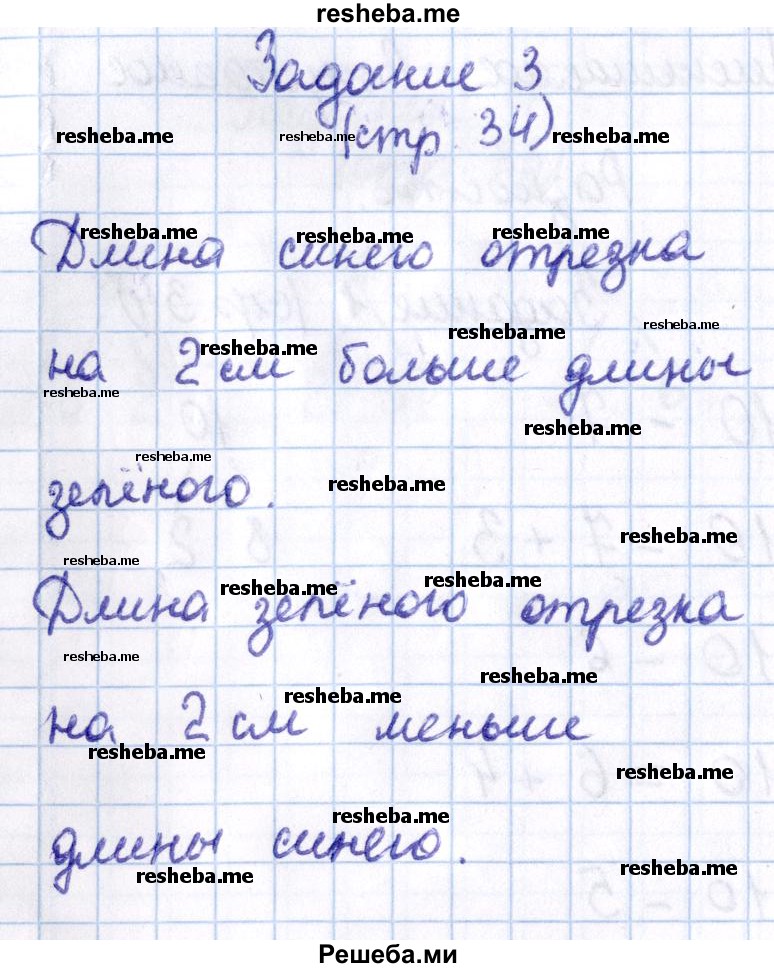 resheba.me
Задание 3
resheba.me resheba.me (стр. 34) resheba.me
resheba.me resheba.me resheba.me
Длина синего отрезка
resheba.me resheba.me resheba.me
на 2 см больше длины
resheba.me
resheba.me
resheba.me
зелёного. resheba.me
resheba.me
resheba.me resheba.me resheba.me
Длина зелёного отрезка
resheba.me
resheba.me
resheba.me
на 2 см меньше
resheba.me
resheba.me
resheba.me
длины синего.
resheba.me resheba.me
Решеба.ми